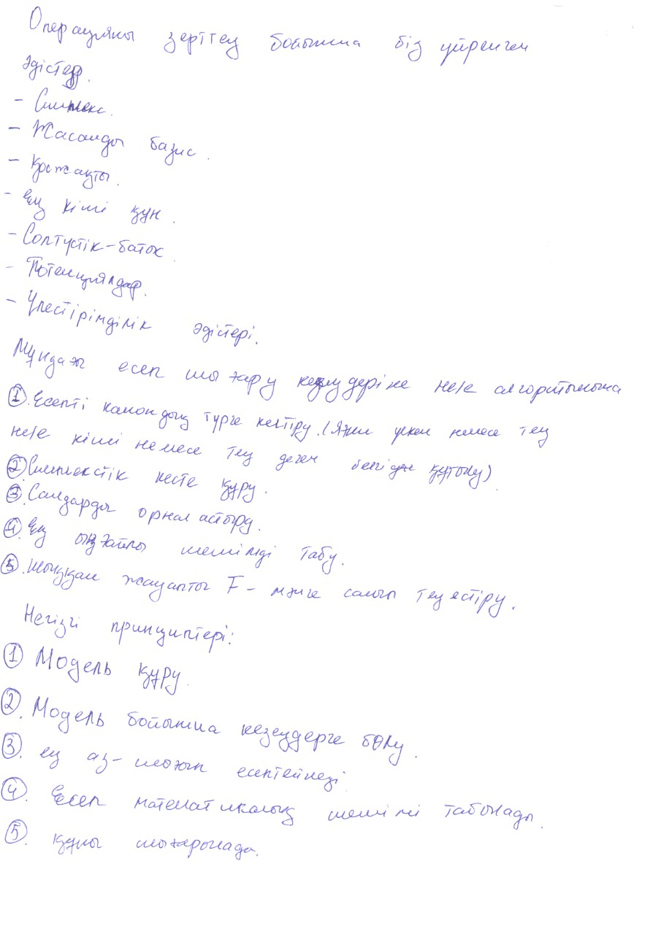 Операцияны зерттеу бойынша біз үйренген
әдістер.
- Симплекс.
- Жасанды базис.
- Қосжақты.
- Ең кіші құн.
- Солтүстік-батыс
- Потенциялдар.
- Үлестірімділік әдістері.
Мұндағы есеп шығару кезеңдеріне не/е алгоритмына
① Есепті канондық түрге келтіру. (Яғни үлкен немесе тең
не/е кіші немесе тең деген белгіден құтылу)
② Симплекстік кесте құру.
③ Сандарды орналастыру.
④ Ең оңтайлы шешімді табу.
⑤ Шыққан жауапты F - мәніне салып теңестіру.
Негізгі принциптері:
① Модель құру
② Модель бойынша кезеңдерге бөлу.
③ ең аз-шығын есептейнеді
④ Есеп математикалық шешімі табылады.
⑤ құны шығарылады.